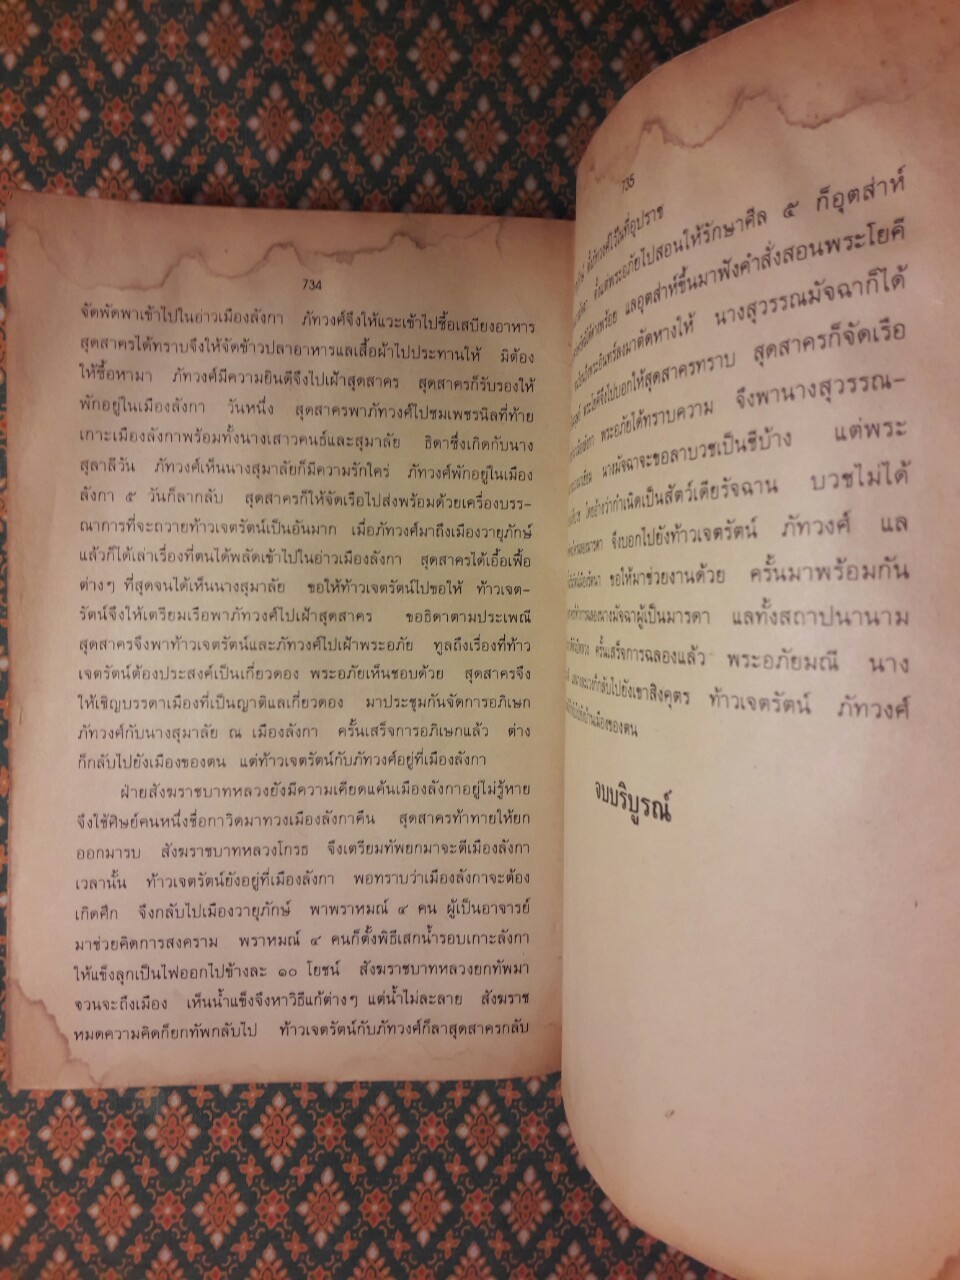 734
จัดพัดพาเข้าไปในอ่าวเมืองลังกา ภัทวงศ์จึงให้แวะเข้าไปซื้อเสบียงอาหาร
สุดสาครได้ทราบจึงให้จัดข้าวปลาอาหารแลเสื้อผ้าไปประทานให้ มิต้อง
ให้ซื้อหามา ภัทวงศ์มีความยินดีจึงไปเฝ้าสุดสาคร สุดสาครก็รับรองให้
พักอยู่ในเมืองลังกา วันหนึ่ง สุดสาครพาภัทวงศ์ไปชมเพชรนิลที่ท้าย
เกาะเมืองลังกาพร้อมทั้งนางเสาวคนธ์และสุมาลัย ธิดาซึ่งเกิดกับนาง
สุลาลีวัน ภัทวงศ์เห็นนางสุมาลัยก็มีความรักใคร่ ภัทวงศ์พักอยู่ในเมือง
ลังกา ๕ วันก็ลากลับ สุดสาครก็ให้จัดเรือไปส่งพร้อมด้วยเครื่องบรร–
ณาการที่จะถวายท้าวเจตรัตน์เป็นอันมาก เมื่อภัทวงศ์มาถึงเมืองวายุภักษ์
แล้วก็ได้เล่าเรื่องที่ตนได้พลัดเข้าไปในอ่าวเมืองลังกา สุดสาครได้เอื้อเฟื้อ
ต่างๆ ที่สุดจนได้เห็นนางสุมาลัย ขอให้ท้าวเจตรัตน์ไปขอให้ ท้าวเจต–
รัตน์จึงให้เตรียมเรือพาภัทวงศ์ไปเฝ้าสุดสาคร ขอธิดาตามประเพณี
สุดสาครจึงพาท้าวเจตรัตน์และภัทวงศ์ไปเฝ้าพระอภัย ทูลถึงเรื่องที่ท้าว
เจตรัตน์ต้องประสงค์เป็นเกี่ยวดอง พระอภัยเห็นชอบด้วย สุดสาครจึง
ให้เชิญบรรดาเมืองที่เป็นญาติแลเกี่ยวดอง มาประชุมกันจัดการอภิเษก
ภัทวงศ์กับนางสุมาลัย ณ เมืองลังกา ครั้นเสร็จการอภิเษกแล้ว ต่าง
ก็กลับไปยังเมืองของตน แต่ท้าวเจตรัตน์กับภัทวงศ์อยู่ที่เมืองลังกา
ฝ่ายสังฆราชบาทหลวงยังมีความเคียดแค้นเมืองลังกาอยู่ไม่รู้หาย
จึงใช้ศิษย์คนหนึ่งชื่อกาวิดมาทวงเมืองลังกาคืน สุดสาครท้าทายให้ยก
ออกมารบ สังฆราชบาทหลวงโกรธ จึงเตรียมทัพยกมาจะตีเมืองลังกา
เวลานั้น ท้าวเจตรัตน์ยังอยู่ที่เมืองลังกา พอทราบว่าเมืองลังกาจะต้อง
เกิดศึก จึงกลับไปเมืองวายุภักษ์ พาพราหมณ์ ๔ คน ผู้เป็นอาจารย์
มาช่วยคิดการสงคราม พราหมณ์ ๔ คนก็ตั้งพิธีเสกน้ำรอบเกาะลังกา
ให้แข็งลุกเป็นไฟออกไปข้างละ ๑๐ โยชน์ สังฆราชบาทหลวงยกทัพมา
จวนจะถึงเมือง เห็นน้ำแข็งจึงหาวิธีแก้ต่างๆ แต่น้ำไม่ละลาย สังฆราช
หมดความคิดก็ยกทัพกลับไป ท้าวเจตรัตน์กับภัทวงศ์ก็ลาสุดสาครกลับ
735
ตั้งภัทวงศ์ไว้ในที่อุปราช
ตั้งแต่พระอภัยไปสอนให้รักษาศีล ๕ ก็อุตส่าห์
แลอุตส่าห์ขึ้นมาฟังคำสั่งสอนพระโยคี
พระอินทร์ลงมาตัดหางให้ นางสุวรรณมัจฉาก็ได้
พระโยคีจึงไปบอกให้สุดสาครทราบ สุดสาครก็จัดเรือ
พระอภัยได้ทราบความ จึงพานางสุวรรณ–
นางมัจฉาจะขอลาบวชเป็นชีบ้าง แต่พระ
โดยอ้างว่ากำเนิดเป็นสัตว์เดียรัจฉาน บวชไม่ได้
จึงบอกไปยังท้าวเจตรัตน์ ภัทวงศ์ แล
ขอให้มาช่วยงานด้วย ครั้นมาพร้อมกัน
นางมัจฉาผู้เป็นมารดา แลทั้งสถาปนานาม
ครั้นเสร็จการฉลองแล้ว พระอภัยมณี นาง
กลับไปยังเขาสิงคุตร ท้าวเจตรัตน์ ภัทวงศ์
บ้านเมืองของตน
จบบริบูรณ์